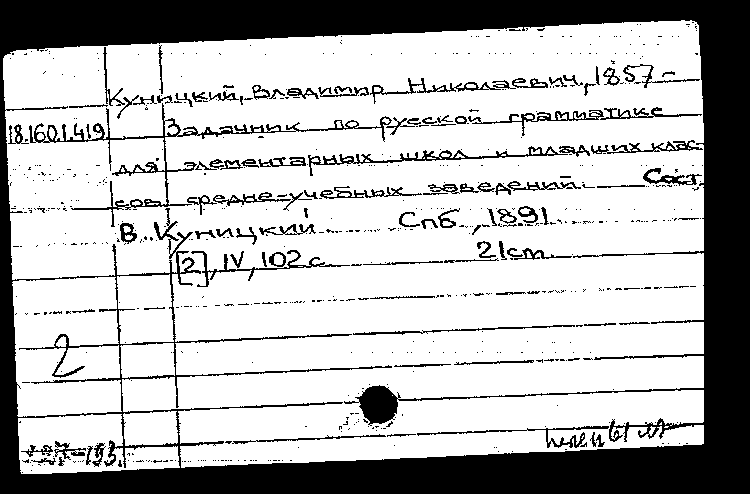 Куницкий, Владимир Николаевич, 1857-
18.160.1.419 Задачник по русской грамматике
для элементарных школ и младших клас-
сов средне-учебных заведений. Сост.
В. Куницкий Спб., 1891.
[2], IV, 102 с. 21 cm.
2